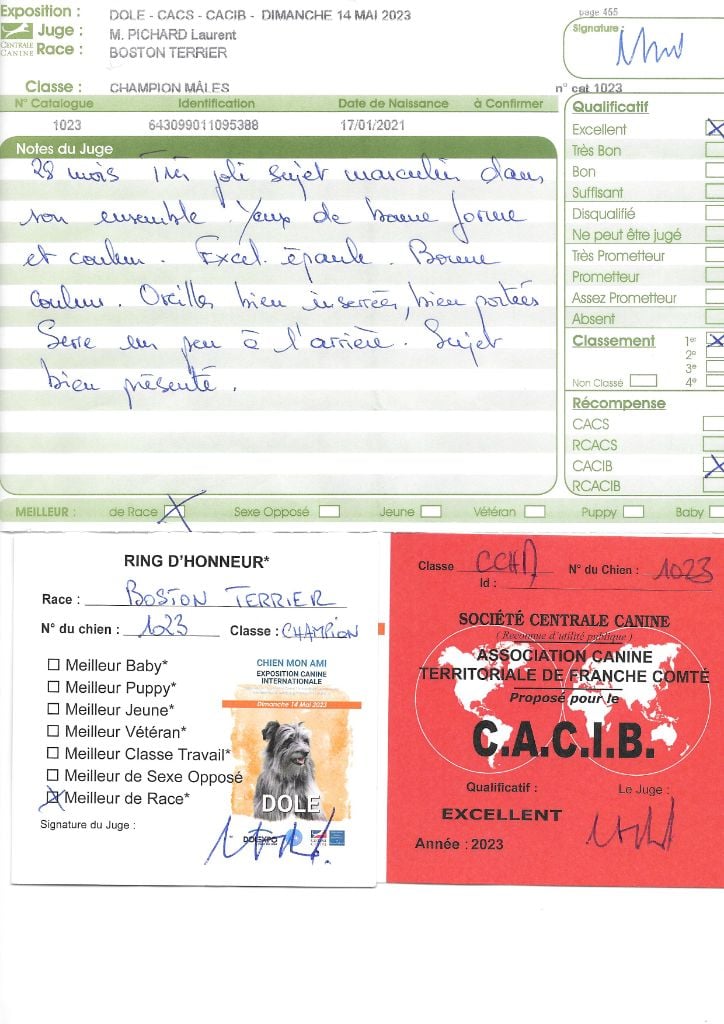 Exposition : DOLE - CACS - CACIB - DIMANCHE 14 MAI 2023
page 455
Juge : M. PICHARD Laurent
Signature :
CENTRALE CANINE
Race : BOSTON TERRIER
Classe : CHAMPION MÂLES
n° cat 1023
N° Catalogue Identification Date de Naissance à Confirmer
1023 643099011095388 17/01/2021
Notes du Juge
28 mois Très joli sujet masculin dans
son ensemble. Yeux de bonne forme
et couleur. Excel. épaule. Bonne
couleur. Oreilles bien insérées, bien portées
Serre un peu à l'arrière. Sujet
bien présenté.
Qualificatif
Excellent
Très Bon
Bon
Suffisant
Disqualifié
Ne peut être jugé
Très Prometteur
Prometteur
Assez Prometteur
Absent
Classement 1er
2e
3e
Non Classé 4e
Récompense
CACS
RCACS
CACIB
RCACIB
MEILLEUR : de Race Sexe Opposé Jeune Vétéran Puppy Baby
RING D'HONNEUR*
Race : BOSTON TERRIER
N° du chien : 1023 Classe : CHAMPION
Meilleur Baby*
Meilleur Puppy*
Meilleur Jeune*
Meilleur Vétéran*
Meilleur Classe Travail*
Meilleur de Sexe Opposé
Meilleur de Race*
Signature du Juge :
CHIEN MON AMI
EXPOSITION CANINE
INTERNATIONALE
Dimanche 14 Mai 2023
DOLE
DOLEXPO
Classe CCHA N° du Chien : 1023
Id :
SOCIÉTÉ CENTRALE CANINE
( Reconnue d'utilité publique )
ASSOCIATION CANINE
TERRITORIALE DE FRANCHE COMTÉ
Proposé pour le
C.A.C.I.B.
Qualificatif : Le Juge :
EXCELLENT
Année : 2023